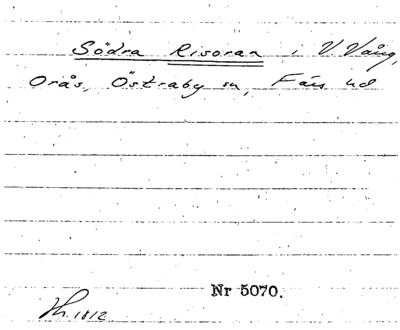 Södra Risoran i V. Vång,
Orås, Östraby sn, Färs hd
Nr 5070.
1812